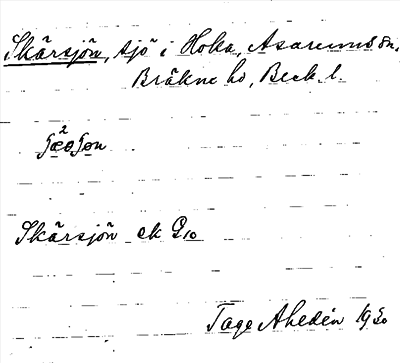 Skärsjön, sjö i Hoka, Asarums sn,
Bräkne hd, Blek. l.
Skärsjön ek G10
Tage Ahedén 1930